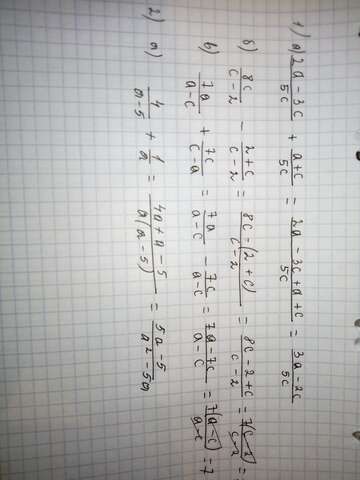 1) а) 2a - 3c / 5c + a + c / 5c = 2a - 3c + a + c / 5c = 3a - 2c / 5c
б) 8c / c - 2 - 2 + c / c - 2 = 8c - (2 + c) / c - 2 = 8c - 2 + c / c - 2 = 7(c - 2) / c - 2 =
в) 7a / a - c + 7c / c - a = 7a / a - c - 7c / a - c = 7a - 7c / a - c = 7(a - c) / a - c = 7
2) а) 4 / a - 5 + 1 / a = 4a + a - 5 / a(a - 5) = 5a - 5 / a² - 5a